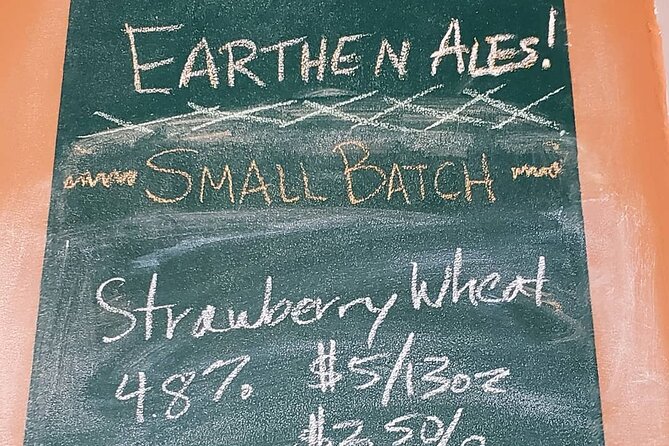 EARTHEN ALES!
SMALL BATCH
Strawberry Wheat
4.8% $5/13oz